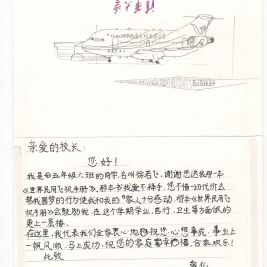 亲爱的校长:
您好!
我是四五年级六班的同学,名叫你若飞,谢谢您送我那一本
《世界民用飞机手册》,那本书我爱不释手,您不惜一切代价去
帮我圆梦的行为使我和我的家人十分感动,那本《世界民用飞
机手册》会鼓励我,在这个学期学业,言行,卫生等方面做的
更上一层楼。
在这里,我代表我们全家衷心地祝您:心想事成,事业上
一帆风顺,马上成功,祝您的家庭幸福,合家欢乐!
此致
敬礼